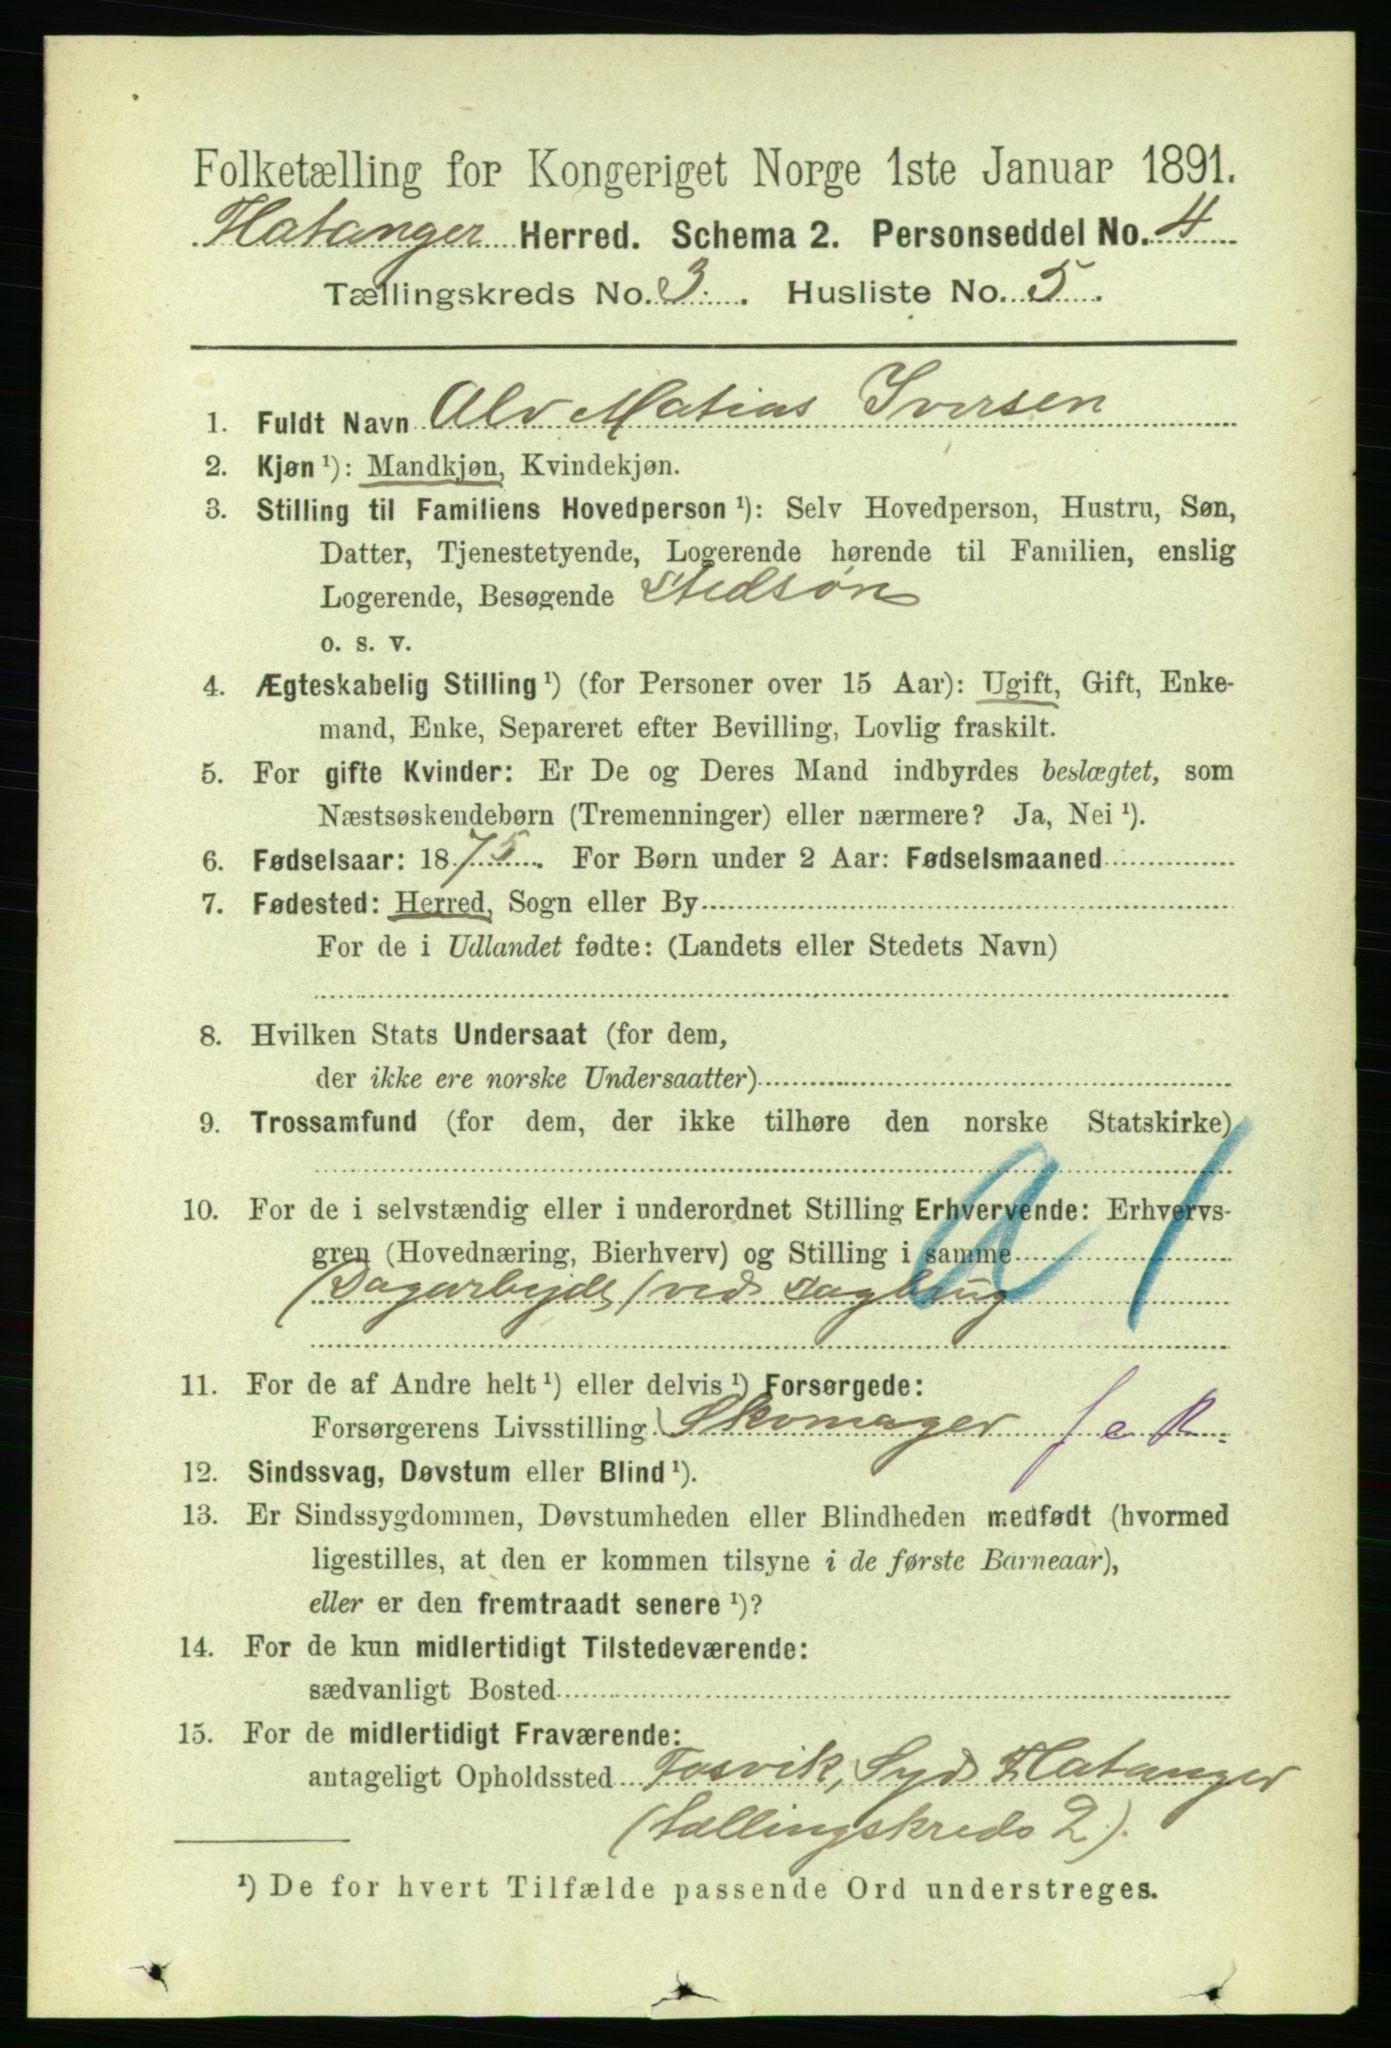 Folketælling for Kongeriget Norge 1ste Januar 1891.
Flatanger Herred. Schema 2. Personseddel No. 4
Tællingskreds No. 3. Husliste No. 5.
1. Fuldt Navn Alv Matias Iversen
2. Kjøn ¹): Mandkjøn, Kvindekjøn.
3. Stilling til Familiens Hovedperson ¹): Selv Hovedperson, Hustru, Søn,
Datter, Tjenestetyende, Logerende hørende til Familien, enslig
Logerende, Besøgende Stedsøn
o. s. v.
4. Ægteskabelig Stilling ¹) (for Personer over 15 Aar): Ugift, Gift, Enke-
mand, Enke, Separeret efter Bevilling, Lovlig fraskilt.
5. For gifte Kvinder: Er De og Deres Mand indbyrdes beslægtet, som
Næstsøskendebørn (Tremenninger) eller nærmere? Ja, Nei ¹).
6. Fødselsaar: 1875. For Børn under 2 Aar: Fødselsmaaned
7. Fødested: Herred, Sogn eller By
For de i Udlandet fødte: (Landets eller Stedets Navn)
8. Hvilken Stats Undersaat (for dem,
der ikke ere norske Undersaatter)
9. Trossamfund (for dem, der ikke tilhøre den norske Statskirke)
10. For de i selvstændig eller i underordnet Stilling Erhvervende: Erhvervs-
gren (Hovednæring, Bierhverv) og Stilling i samme
(Dagarbejde) ved sagbrug
a 1
11. For de af Andre helt ¹) eller delvis ¹) Forsørgede:
Forsørgerens Livsstilling Skomager
12. Sindssvag, Døvstum eller Blind ¹).
13. Er Sindssygdommen, Døvstumheden eller Blindheden medfødt (hvormed
ligestilles, at den er kommen tilsyne i de første Barneaar),
eller er den fremtraadt senere ¹)?
14. For de kun midlertidigt Tilstedeværende:
sædvanligt Bosted
15. For de midlertidigt Fraværende:
antageligt Opholdssted Fosvik, Syd Flatanger
(tællingskreds 2).
¹) De for hvert Tilfælde passende Ord understreges.